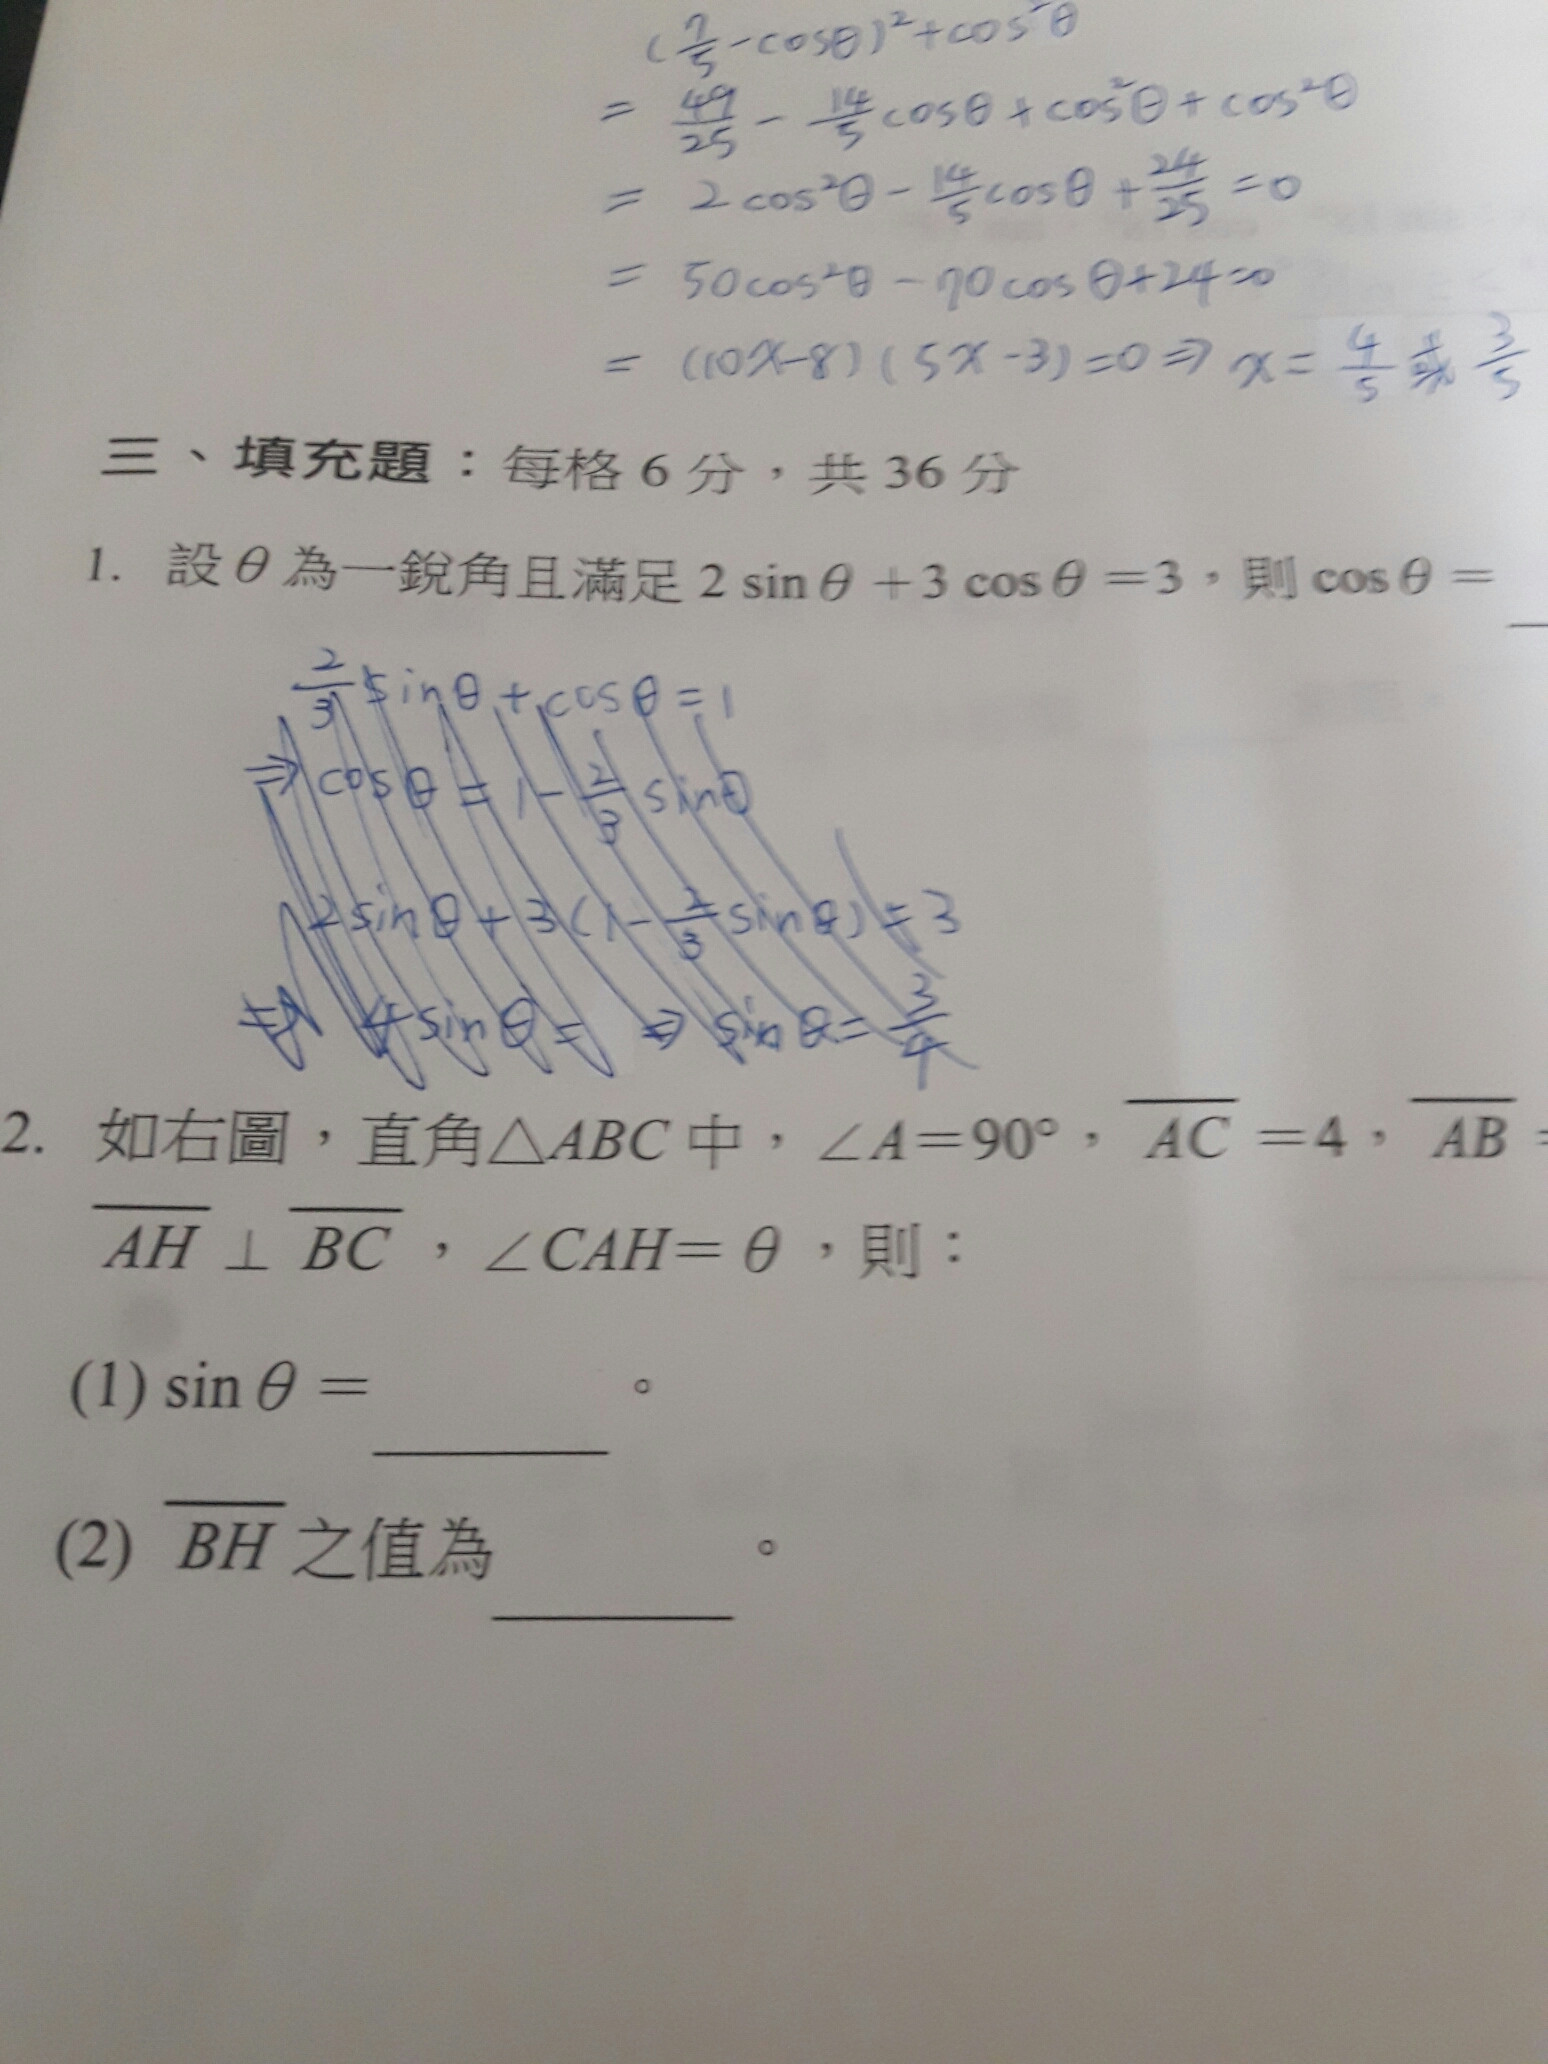 (7/5-cosθ)²+cos²θ
= 49/25 - 14/5 cosθ + cos²θ + cos²θ
= 2cos²θ - 14/5 cosθ + 24/25 = 0
= 50cos²θ - 70cosθ+24=0
= (10x-8)(5x-3)=0 ⇒ x= 4/5 或 3/5
三、填充題：每格 6 分，共 36 分
1. 設 θ 為一銳角且滿足 2 sin θ ＋3 cos θ ＝3，則 cos θ ＝
2/3 sinθ + cosθ = 1
⇒ cosθ = 1 - 2/3 sinθ
2sinθ + 3(1- 2/3 sinθ) = 3
⇒ 4sinθ = ⇒ sinθ = 3/4
2. 如右圖，直角△ABC 中，∠A＝90°， AC ＝4， AB
AH ⊥ BC ，∠CAH＝ θ ，則：
(1) sin θ ＝ 。
(2) BH 之值為 。